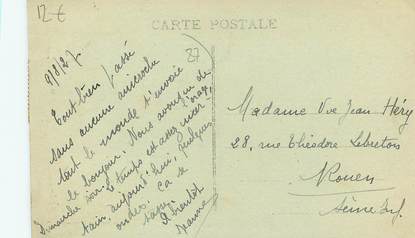 12 €
CARTE POSTALE
37
9/8/27
Tout bien passé
sans aucune anicroche
tout le monde t'envoie
le bonjour. Nous avons eu de
l'orage,
Dimanche soir. Le temps est assez
tain, aujourd'hui, quelques
ondées. Ça se
A bientôt
Jeanne
Madame Vve Jean Héry
28, rue Théodore Lebreton
Rouen
Seine Inf.